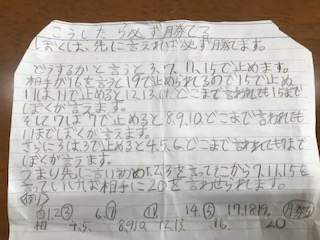 こうしたら必ず勝てる
ぼくは、先に言えれば必ず勝てます。
どうするかと言うと3、7、11、15で止めます。
相手が16を言うと19で止められるので15で止め
11は11で止めると12、13、14、どこまで言われても15まで
ぼくが言えます。
そして7は7で止めると8、9、10、どこまで言われても
11までぼくが言えます。
さらに3は3で止めると4、5、6、どこまで言われても7まで
ぼくが言えます。
つまり先に言い初め1、2、3を言ってそこから7、11、15を
言っていけば相手に20を言わせられます。
例)
自1、2、③ 6、⑦ ⑪ 14、⑮ 17、18、19、
相 4、5、 8、9、10、 12、13、 16、 20